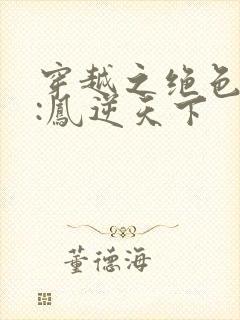 穿越之绝色
:鳳逆天下
董德海